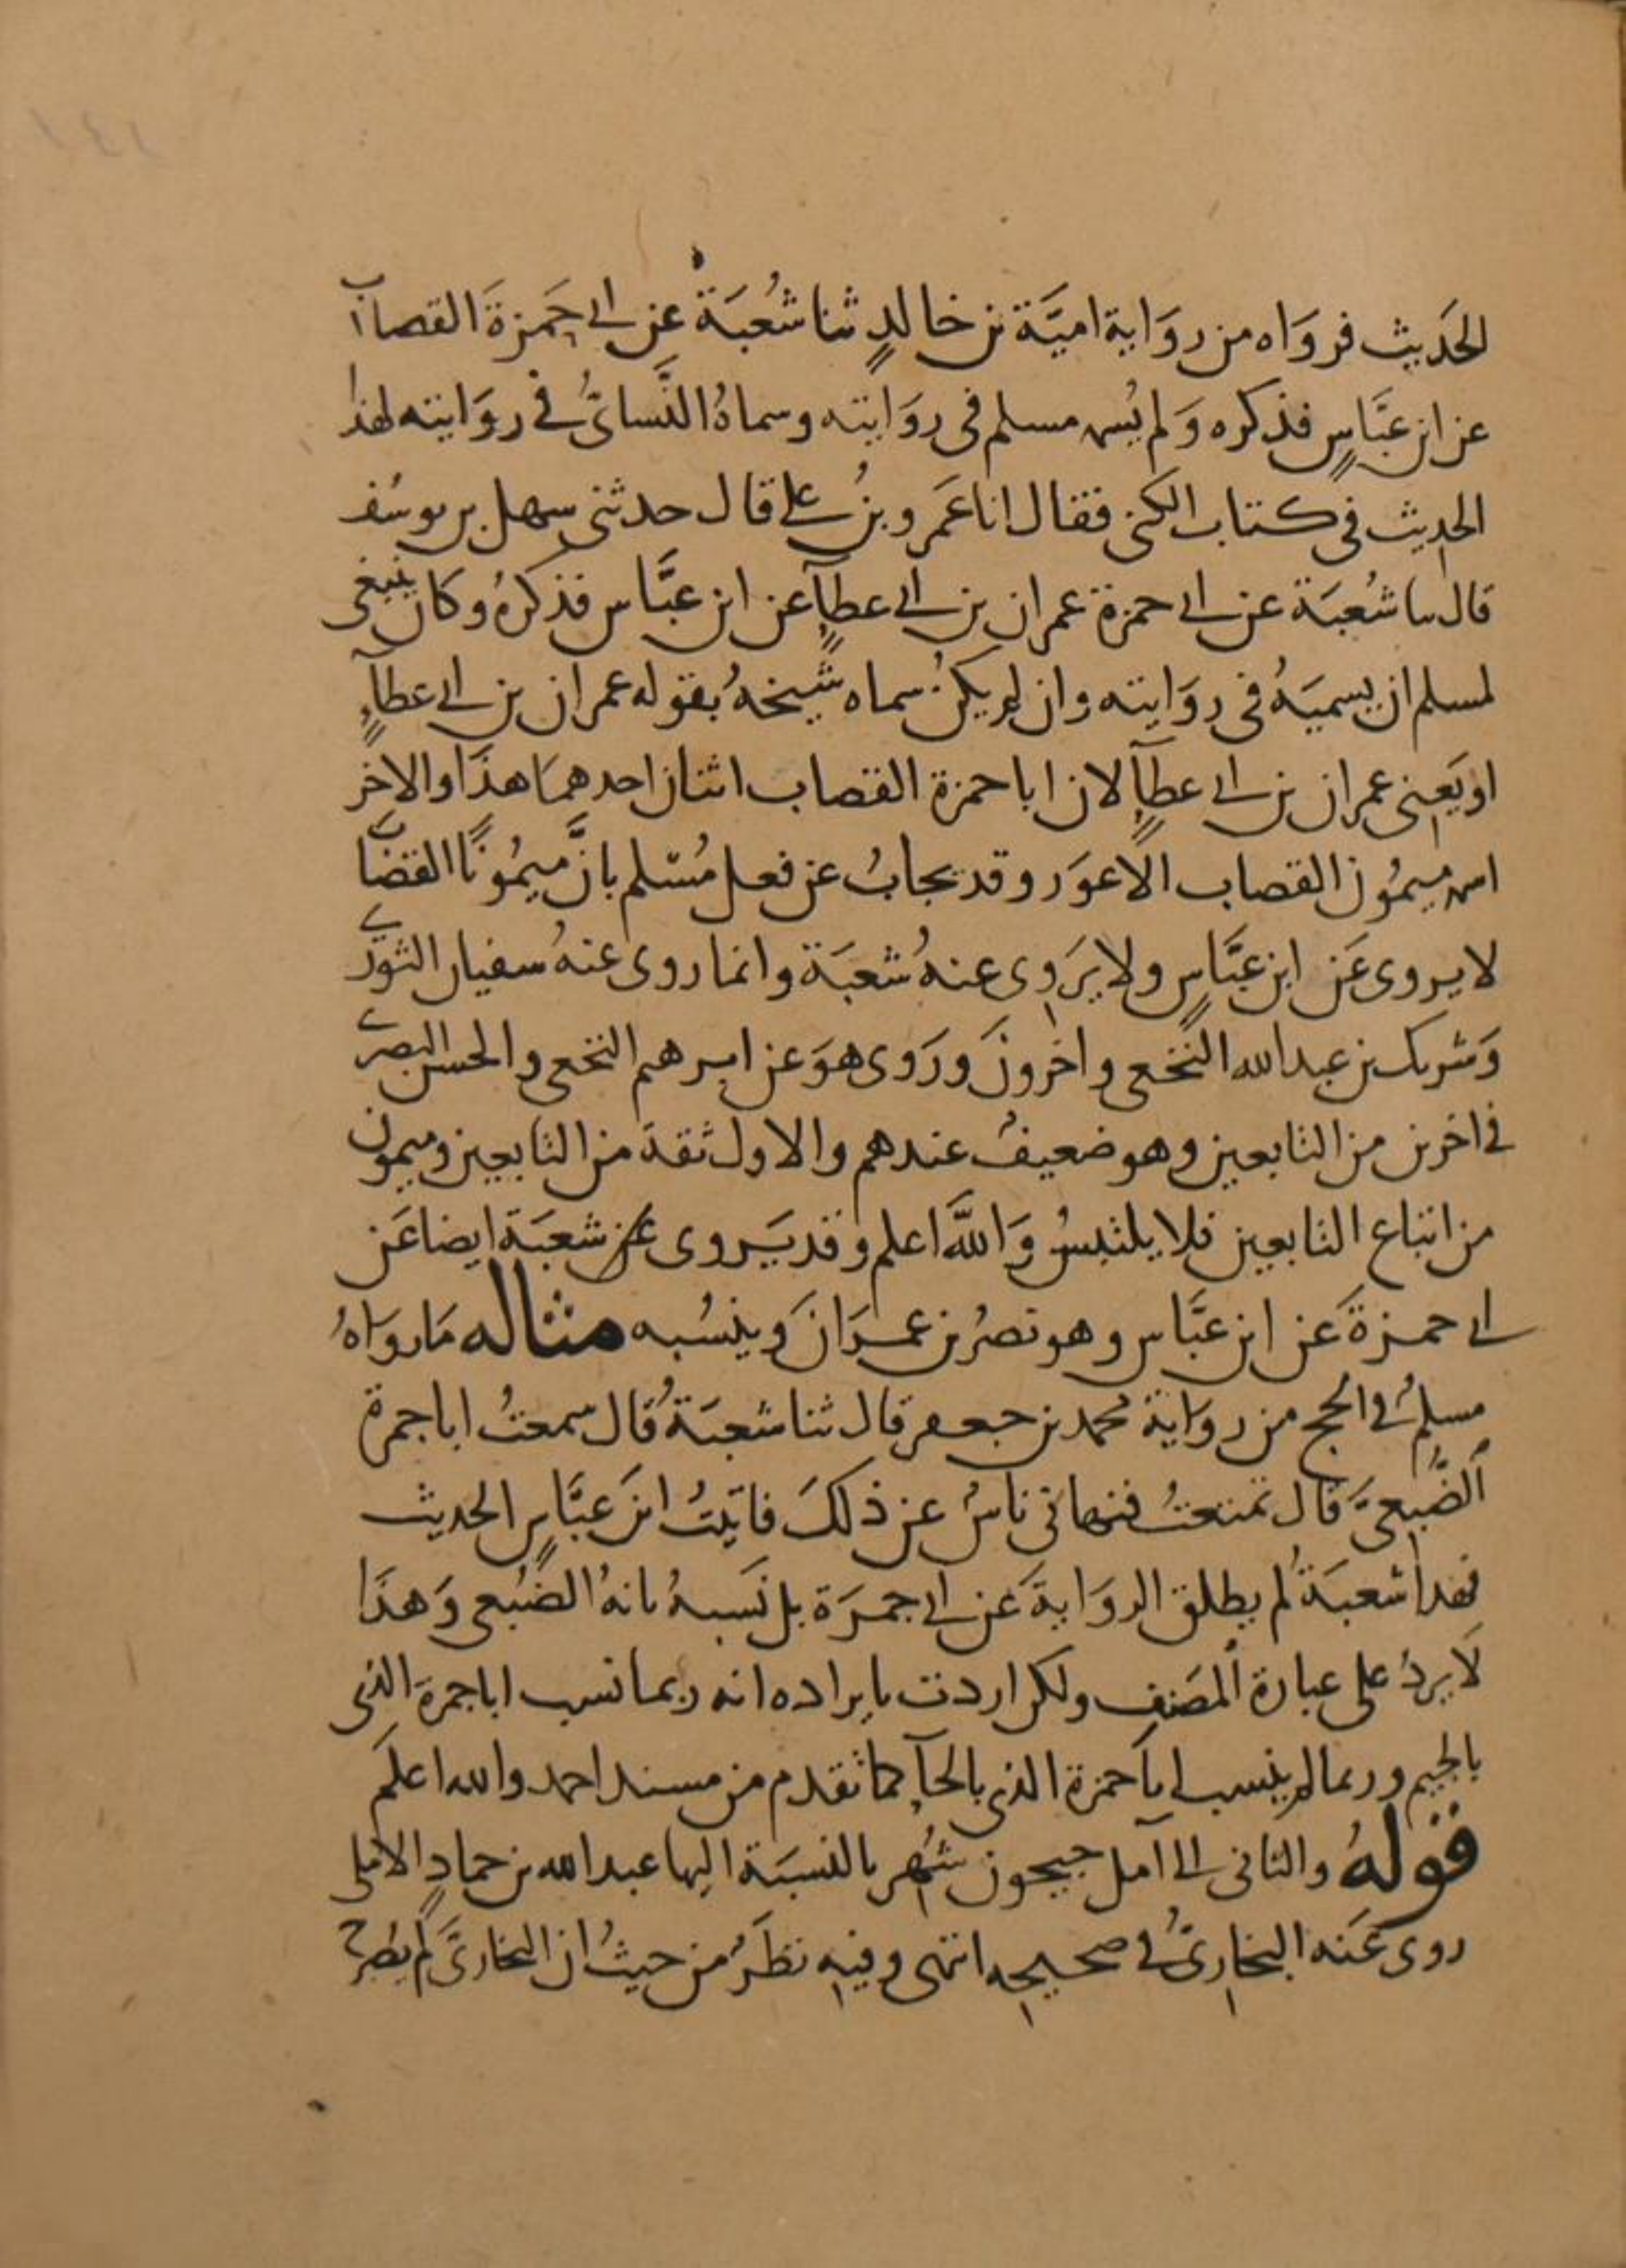 الحَديث فروَاه من روَاية اميَّة بن خالدٍ ثنا شُعبَة عن ابي حَمزةَ القصاب
عن ابن عبَّاسٍ فذكره وَلم يُسمه مسلم في روَايته وسماهُ النَّسائيُّ في روَايته لهذا
الحديث في كتاب الكنى فقال انا عَمرو بنُ علي قال حدثني سهل بن يوسُف
قال ثنا شُعبَة عن ابي حمزة عمران بن ابي عطآءٍ عن ابن عبَّاس فذكرهُ وكان ينبغي
لمسلم ان يسميَهُ في روَايته وان لم يكنْ سماه شيخهُ بقوله عمران بن ابي عطآءٍ
او يَعني عمران بن ابي عطآءٍ لان ابا حمزة القصاب اثنان احدهمَا هذَا والاخر
اسمه ميمُون القصاب الاعوَر وقد يجابُ عن فعل مُسْلم بانَّ ميمُونًا القصَّاب
لا يروى عَن ابن عبَّاسٍ ولا يَروِى عنهُ شعبَة وانما روى عنهُ سفيان الثوريّ
وَشريك بن عبد الله النَّخعي واخرونَ ورَوى هوَ عن ابرهيم النخعي والحسن البصري
في اخرين من التابعين وهو ضعيفٌ عندهم والاول ثقة من التابعين وميمون
من اتباع التابعين فلا يلتبسُ وَاللّهُ اعلم وقد يَروى عن شعبَة ايضا عَن
ابي حمزةَ عن ابن عبَّاس وهو نصرُ بن عمرَانَ وينسُبه مثاله مَا روَاهُ
مسلمٌ في الحج من روَاية محمد بن جعفر قال ثنا شعبَةُ قال سمعتُ ابا جمرة
الضُّبعيَّ قال تمتعتُ فنهاني ناسٌ عن ذلكَ فاتيتُ ابنَ عبَّاسٍ الحديث
فهذا شعبَةُ لم يطلق الروَايةَ عَن ابي جمرَة بل نَسبهُ بانهُ الضُبَعي وَهذَا
لَا يردُ على عبارة المصَنف ولكن اردت بايراده انه ربما نسب ابا جمرة الذي
بالجيم وربما لم ينسب ابآ حمزة الذي بالحآء كما تقدم من مسند احمد والله اعلم
قولهُ والثاني الى آمل جيحون شُهر بالنسبَة اليها عبد الله بن حمادٍ الاملي
روى عَنه البخاريُّ في صحيحه انتهى وفيه نظَرٌ من حيثُ ان البخاريَّ لم يصرح